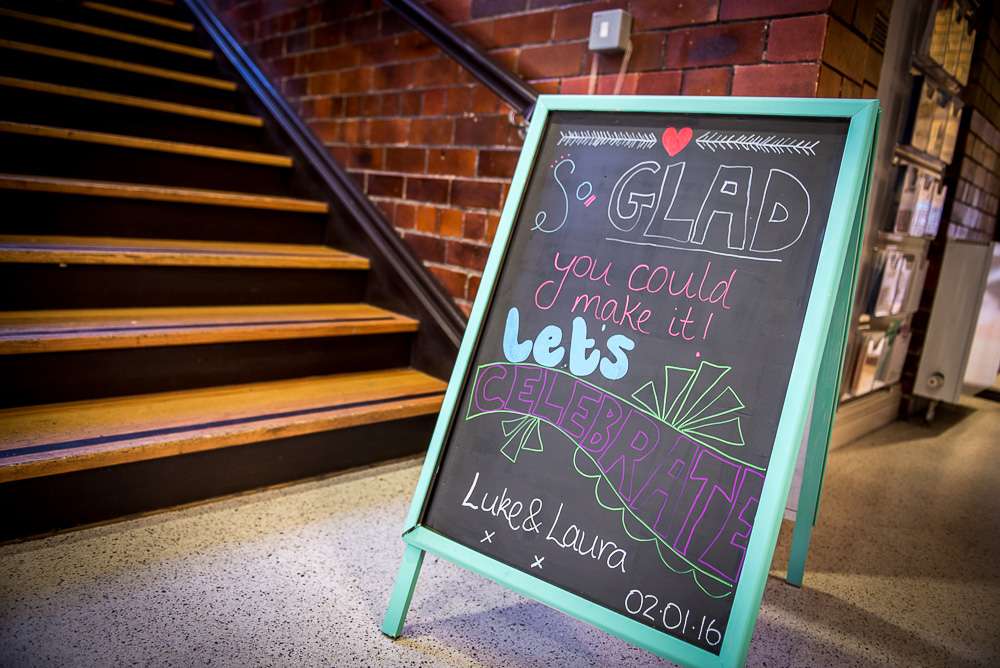 So GLAD
you could
make it!
Let's
CELEBRATE
Luke & Laura
x x
02.01.16